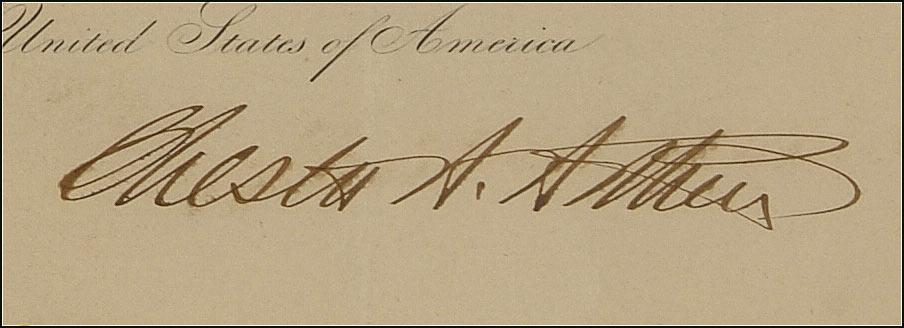 United States of America
Chester A. Arthur